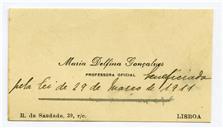 Maria Delfina Gonçalves
PROFESSORA OFICIAL beneficiada
pela Lei de 29 de Março de 1911
R. da Saudade, 29, r/c. LISBOA